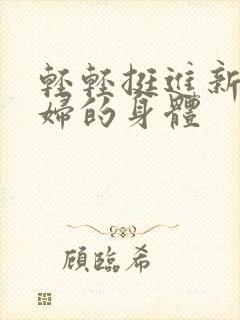 輕輕挺進新
婦的身體
顧臨希